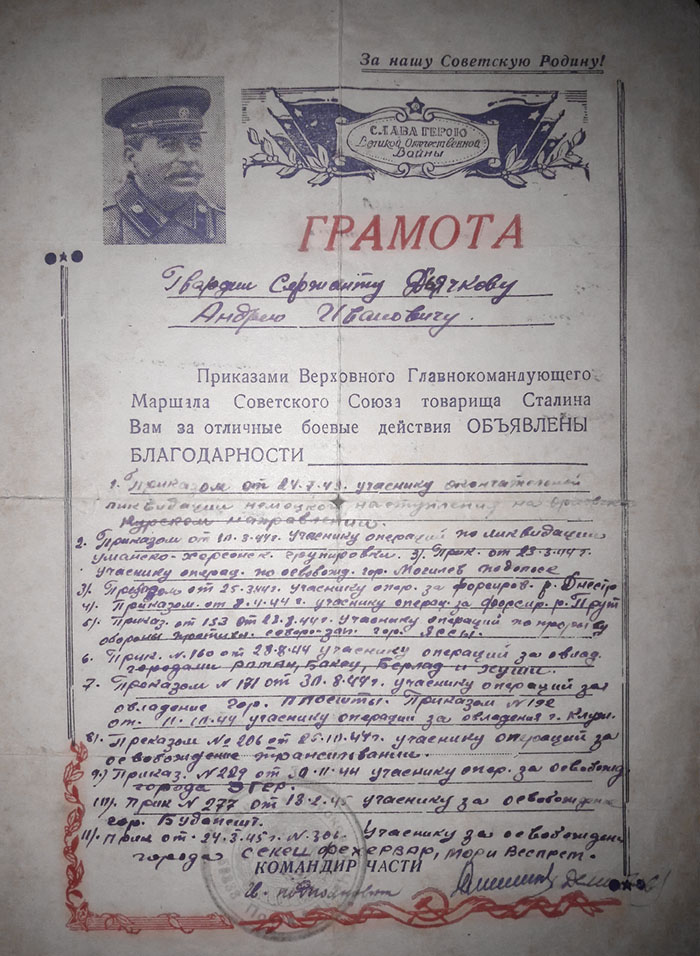 За нашу Советскую Родину!
СЛАВА ГЕРОЮ
Великой Отечественной
Войны
ГРАМОТА
Гвардии Сержанту Дьячкову
Андрею Ивановичу.
Приказами Верховного Главнокомандующего
Маршала Советского Союза товарища Сталина
Вам за отличные боевые действия ОБЪЯВЛЕНЫ
БЛАГОДАРНОСТИ
1. Приказом от 24.7.43. учаснику окончательной
ликвидации немецкого наступления на орловско
Курском направлении.
2. Приказом от 10.3.44г. учаснику операций по ликвидации
умалско-херсонск. групировки. 3). Прик. от 23.3.44г.
учаснику операц. по освовожд. гор. Могилев подольск
3). Приказом от 25.3.44г. учаснику опер. за форсиров. р. Днестр
4). Приказом от 8.4.44г. учаснику операц. за форсир. р. Прут
5). Приказ. от 153 от 22.8.44г. учаснику операций по прорыву
обороны противн. северо-зап. гор. Яссы.
6. Прик. № 160 от 28.8.44 учаснику операций за овлад.
городами Бакэу, Берлад и Хуши.
7. Приказом № 171 от 30.8.44г. учаснику операций за
овладение гор. Плоешты. Приказом № 192
от 11.10.44 учаснику операции за овладения г. Клуж.
8). Приказом № 206 от 25.10.44г. учаснику операций за
освобождение трансильвании.
9.) Приказ. № 209 от 30.11.44 учаснику опер. за освобожд.
города ЭГЕР.
10). Прик № 277 от 13.2.45 учаснику за освобожден
гор. Будапешт.
11). Прик от 24.3.45г. N. 306. Учаснику за освобожден
города СЕКЕШФЕХЕРВАР, Мори Веспрем.
КОМАНДИР ЧАСТИ
Гв. подполковник